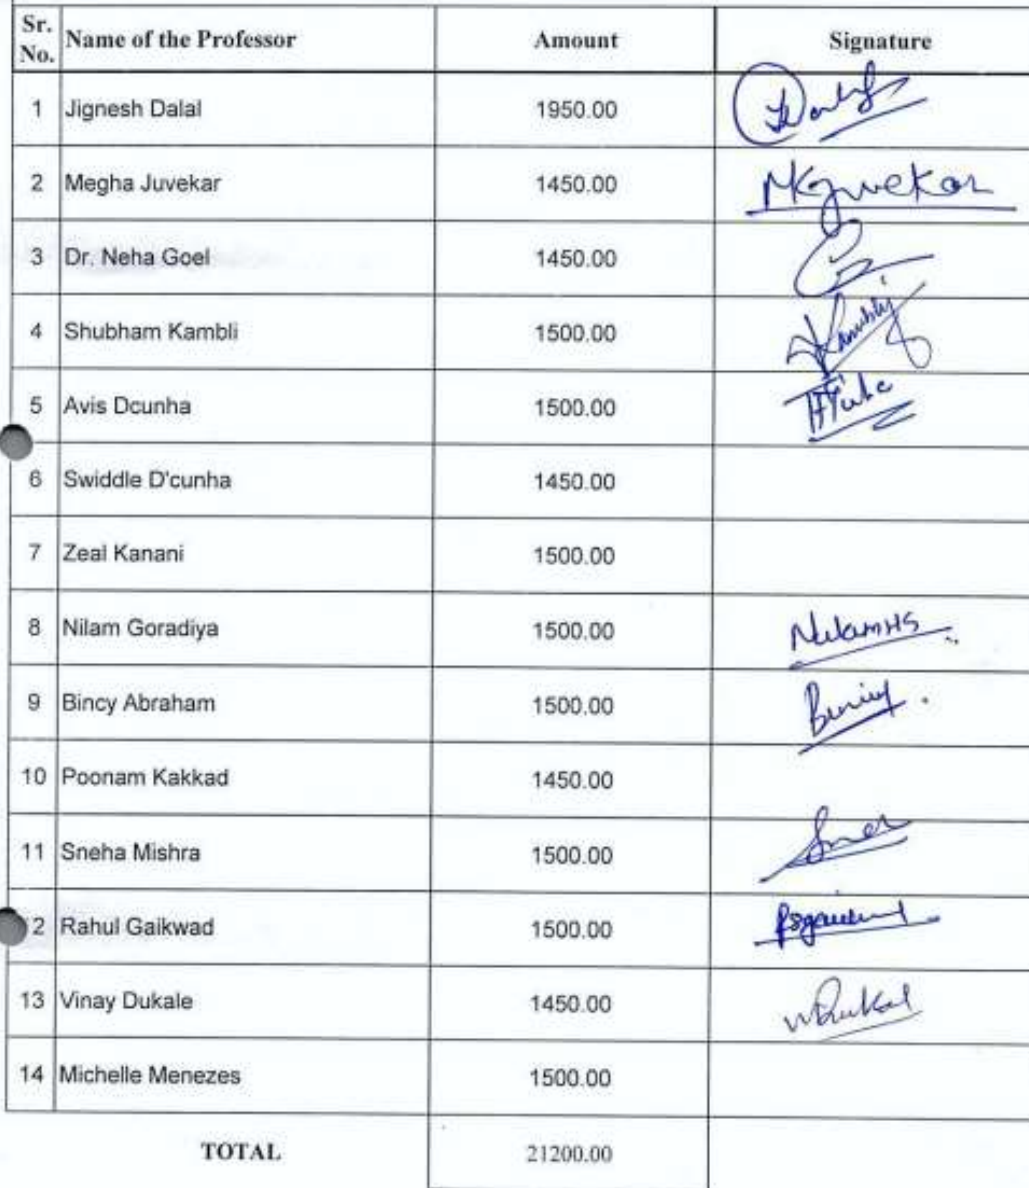 Sr. No. Name of the Professor Amount Signature
1 Jignesh Dalal 1950.00
2 Megha Juvekar 1450.00 MKJuvekar
3 Dr. Neha Goel 1450.00
4 Shubham Kambli 1500.00 Kambli
5 Avis Dcunha 1500.00
6 Swiddle D'cunha 1450.00
7 Zeal Kanani 1500.00
8 Nilam Goradiya 1500.00
9 Bincy Abraham 1500.00
10 Poonam Kakkad 1450.00
11 Sneha Mishra 1500.00
2 Rahul Gaikwad 1500.00
13 Vinay Dukale 1450.00
14 Michelle Menezes 1500.00
TOTAL 21200.00